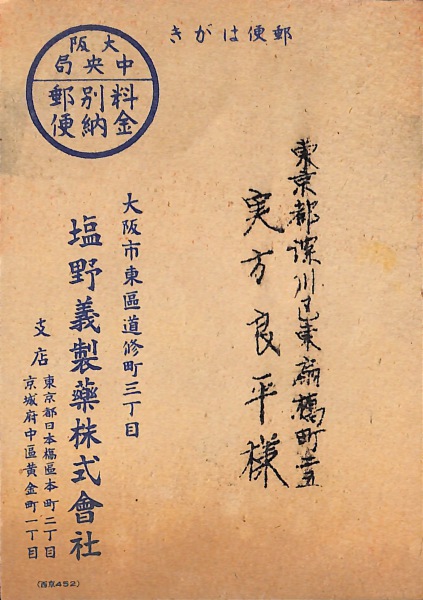 郵便はがき
大阪
中央局
料金
別納
郵便
東京都深川区東扇橋町二ノ五
実方良平様
大阪市東區道修町三丁目
塩野義製薬株式會社
支店
東京都日本橋區本町二丁目
京城府中區黄金町一丁目
(西京452)